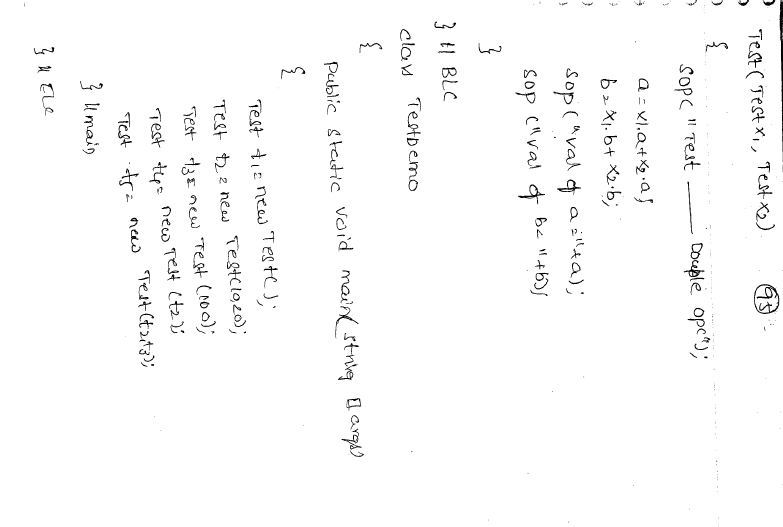 95
Test (Test x1, Test x2)
{
sop(" Test ___ Double opc");
a = x1.a+x2.a;
b= x1.b + x2.b;
sop("val of a ="+a);
sop ("val of b= "+b);
}
} // BLC
class TestDemo
{
public static void main(string [] args)
{
Test t1= new Test();
Test t2 = new Test(10,20);
Test t3= new Test (100);
Test t4= new Test (t2);
Test t5= new Test(t2,t3);
} // main
} // ELC